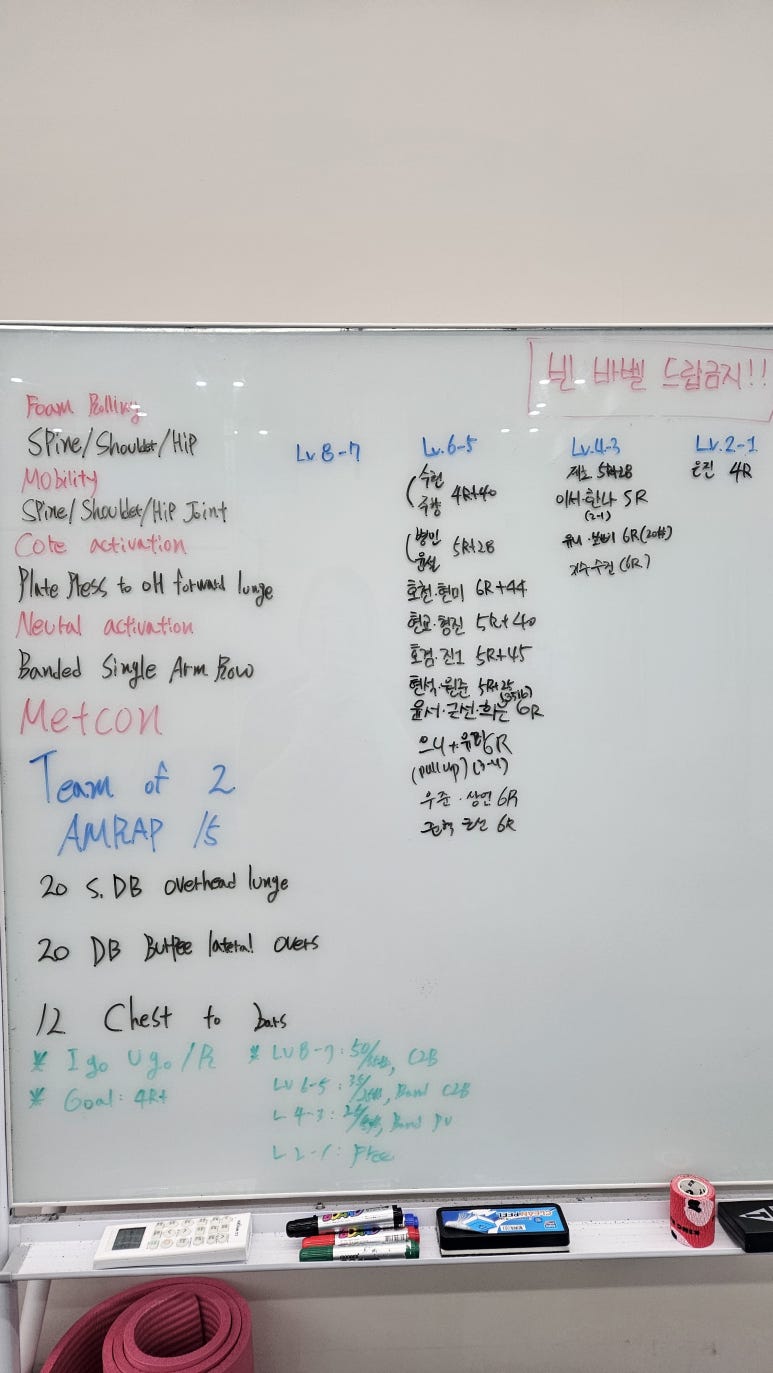 빈 바벨 드랍금지!!
Foam Rolling
Spine/Shoulder/Hip
Mobility
Spine/Shoulder/Hip Joint
Core activation
Plate Press to OH forward lunge
Neural activation
Banded Single Arm Row
Metcon
Team of 2
AMRAP 15
20 S. DB overhead lunge
20 DB Burpee lateral overs
12 Chest to bars
* I go U go /R
* Goal: 4R+
* LV 8-7: 50/35lb, C2B
LV 6-5: 35/25lb, Band C2B
L 4-3: 25/lb, Band PU
L 2-1: Free
Lv.8-7
Lv.6-5
수현
4R+40
병민
윤설 5R+28
호천·현미 6R+44
현교·형진 5R+40
호검·진1 5R+45
현석·원준 5R+25 (35lb)
윤서·근선·희은 6R
6R
(pull up) (3-4)
우준·상연 6R
6R
Lv.4-3
5R+28
이서·한나 5R
(2-1)
유니·보비 6R (20#)
지수·수진 (6R)
Lv.2-1
은진 4R